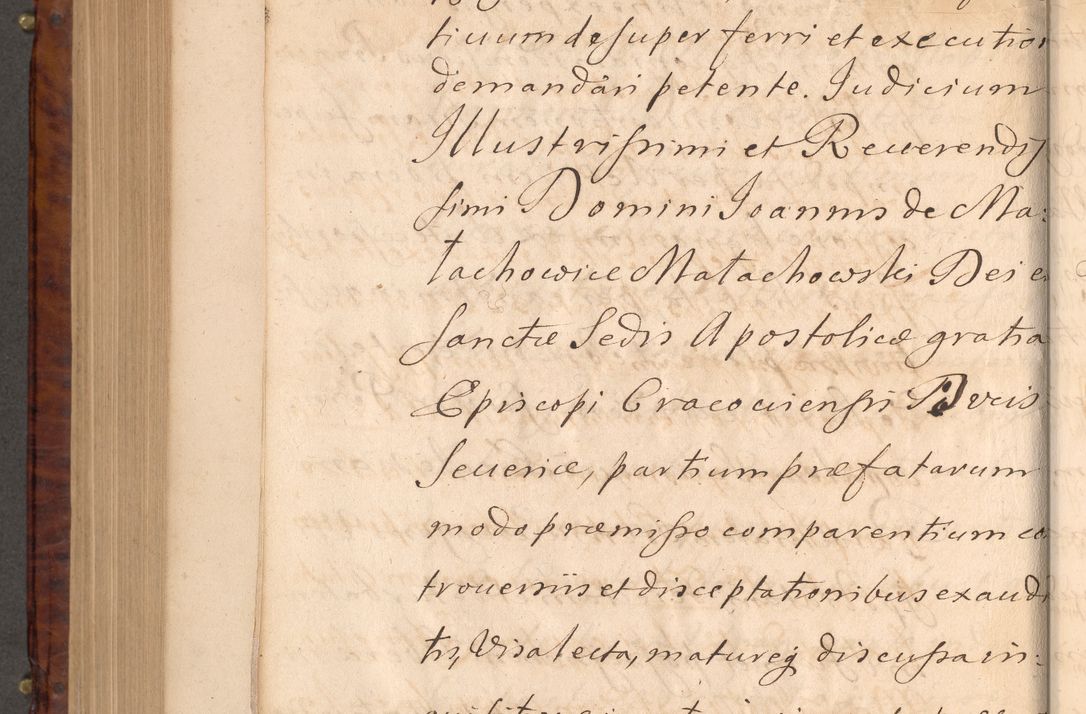 tiuum desuper ferri et execution
demandari petente. Judicium
Illustrissimi et Reuerendis
simi Domini Joannis de Ma:
łachowice Małachowski Dei e
Sanctæ Sedis Apostolicæ gratia
Episcopi Cracouiensis Ducis
Seueriæ, partium præfatarum
modo præmisso comparentium co
trouersiis et disceptationibus exaudi
tis, Visa lecta, matureq discussa in: